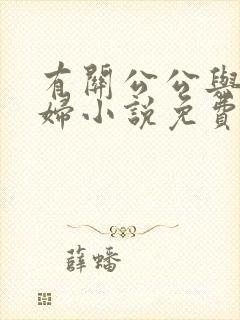 有關公公與
婦小說免費
薛蟠